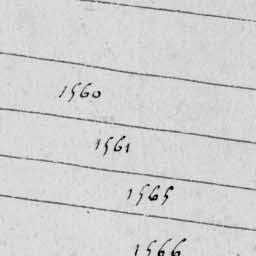 1560
1561
1565
1566